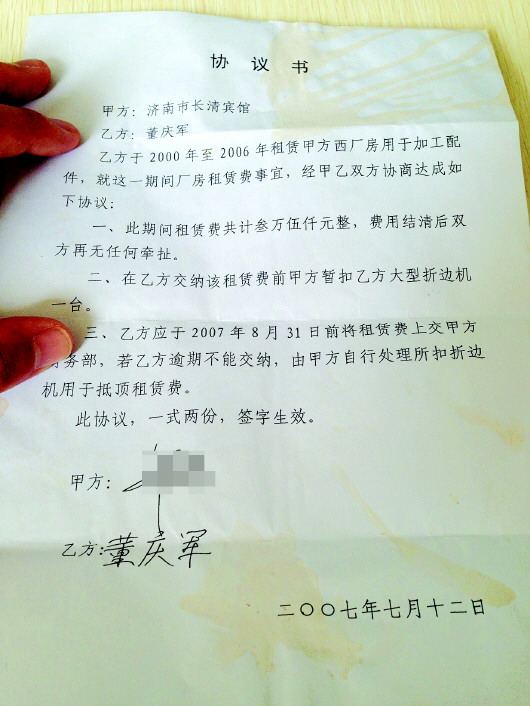 协议书
甲方：济南市长清宾馆
乙方：董庆军
乙方于2000年至2006年租赁甲方西厂房用于加工配
件，就这一期间厂房租赁费事宜，经甲乙双方协商达成如
下协议：
一、此期间租赁费共计叁万伍仟元整，费用结清后双
方再无任何牵扯。
二、在乙方交纳该租赁费前甲方暂扣乙方大型折边机
一台。
三、乙方应于2007年8月31日前将租赁费上交甲方
务部，若乙方逾期不能交纳，由甲方自行处理所扣折边
机用于抵顶租赁费。
此协议，一式两份，签字生效。
甲方：
乙方：董庆军
二〇〇七年七月十二日